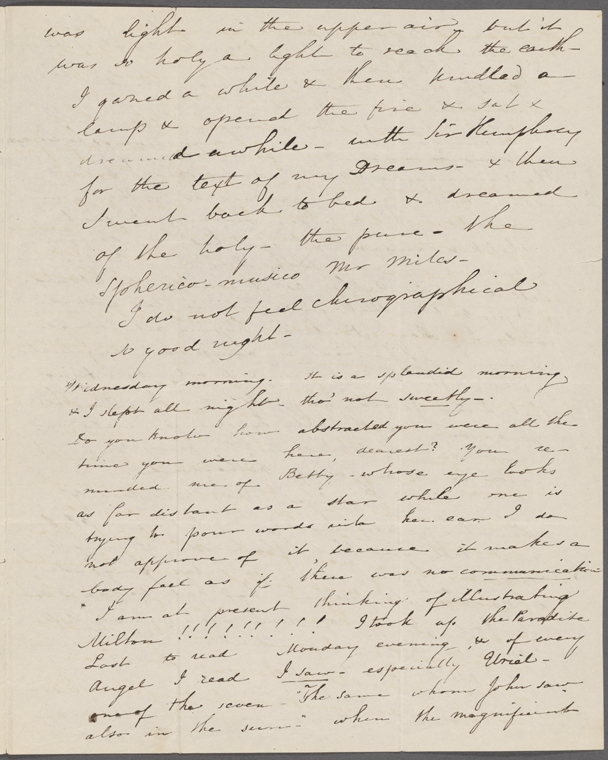 was light in the upper air, but it
was so holy a light to reach the earth-
I gazed a while & then kindled a
lamp & opened the fire & sat &
dreamed awhile - with Sir Humphrey
for the text of my Dreams - & then
I went back to bed & dreamed
of the holy - the pure - the
Spherico-musico Mr Miles -
I do not feel chirographical
so good night -
Wednesday morning. It is a splendid morning
& I slept all night tho' not sweetly -.
Do you know how abstracted you were all the
time you were here, dearest? You re-
minded me of Betty - whose eye looks
as far distant as a star while one is
trying to pour words into her ear I do
not approve of it because it makes a
body feel as if there was no communication
I am at present thinking of illustrating
Milton !!!!!!!!! I took up the Paradise
Lost to read Monday evening, & of every
Angel I read I saw - especially Uriel -
one of the seven - "The same whom John saw
also in the sun" when the magnificent